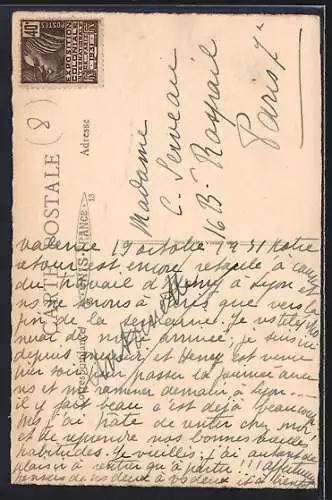 40c
POSTES
EXPOSITION
COLONIALE
INTERNATIONALE
PARIS 1931
(8)
CARTE POSTALE
Correspondance
ADONIS-FRANCE
13
Adresse
Madame
C. Serveau
16 B. Raspail
Paris 7e
Valence 19 octobre 1931 Notre
retour est encore retardé à cause
du travail d'Henry à Lyon et
ns ne serons à Paris que vers la
fin de la semaine. Je vs
moi de mon arrivée, je suis ici
depuis et Henry est venu
hier soir passer la journée avec
ns et ns ramener demain à Lyon
il y fait beau a est déjà beaucoup
mais j'ai hâte de rentrer chez moi
et de reprendre nos bonnes
habitudes. Je vieillis: j'ai autant de
plaisir à rentrer qu'à partir!!! affectueuses
pensées de ns deux à vs deux et à bientôt